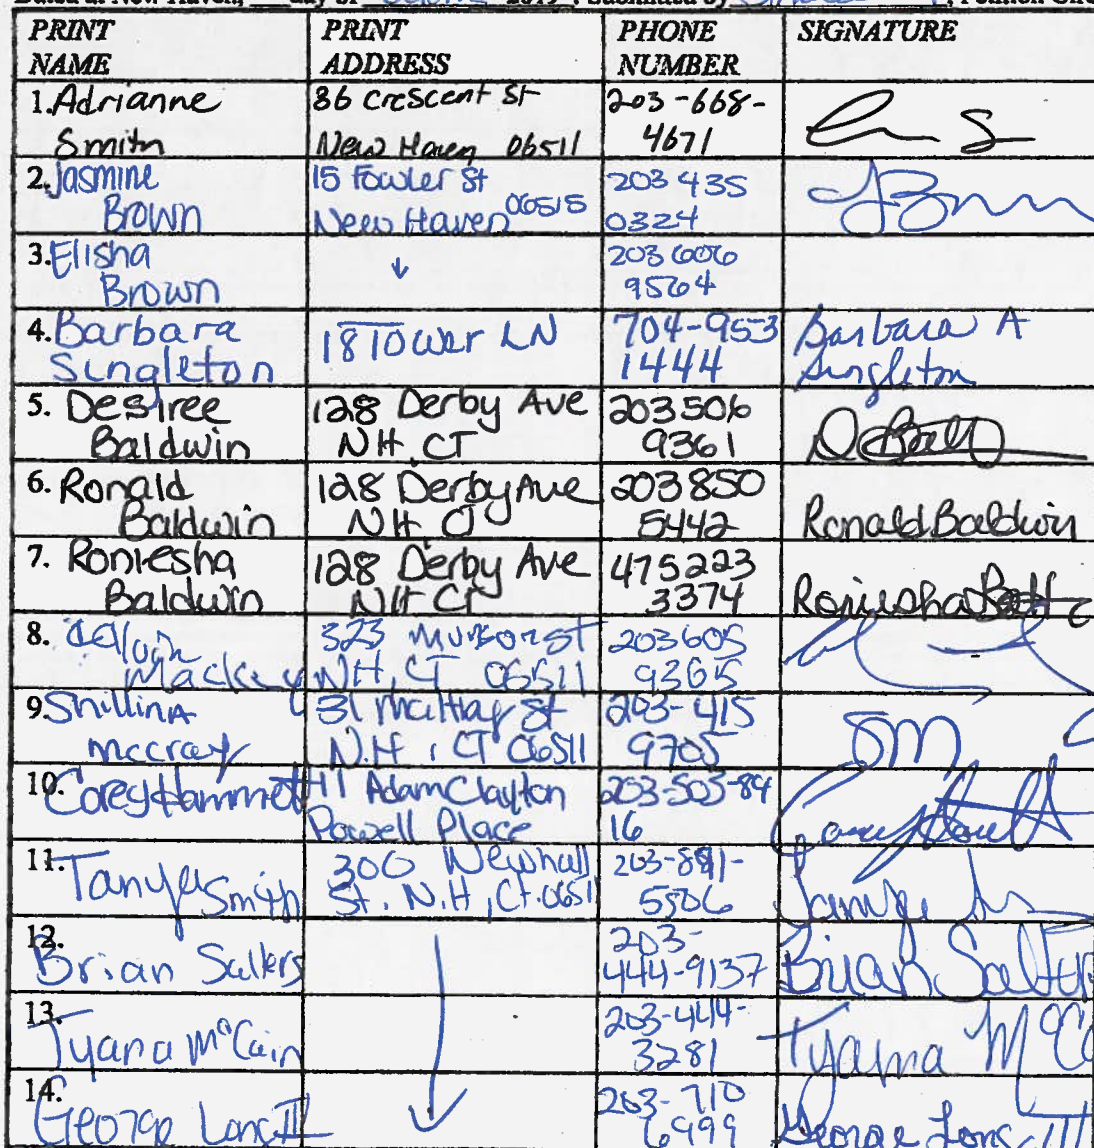 Dated at New Haven, day of 2019, Submitted by
PRINT NAME PRINT ADDRESS PHONE NUMBER SIGNATURE
1. Adrianne Smith 86 Crescent St New Haven 06511 203-668-4671
2. Jasmine Brown 15 Fowler St New Haven 06515 203 435 0324 JBrown
3. Elisha Brown ↓ 203 606 9564
4. Barbara Singleton 18 Tower LN 704-953 1444 Barbara A Singleton
5. Desiree Baldwin 128 Derby Ave NH, CT 203506 9361
6. Ronald Baldwin 128 Derby Ave NH CT 203 850 5442 Ronald Baldwin
7. Roniesha Baldwin 128 Derby Ave NH CT 475223 3374 Roniesha
8. Mackey 323 Munson st NH, CT 06511 203605 9365
9. Shillina mccray 31 St N.H, CT 06511 203-415 9705 SM
10. Corey Hammett 41 Adam Clayton Powell Place 203-503-84 16
11. Tanya Smith 300 Newhall St. N.H, Ct. 0651 203-5506
12. Brian Salters ↓ 203-444-9137 Brian Salters
13. Tyana McCain 203-444-3281 Tyana McCa
14. George Long II 203-710 6999 George Long III